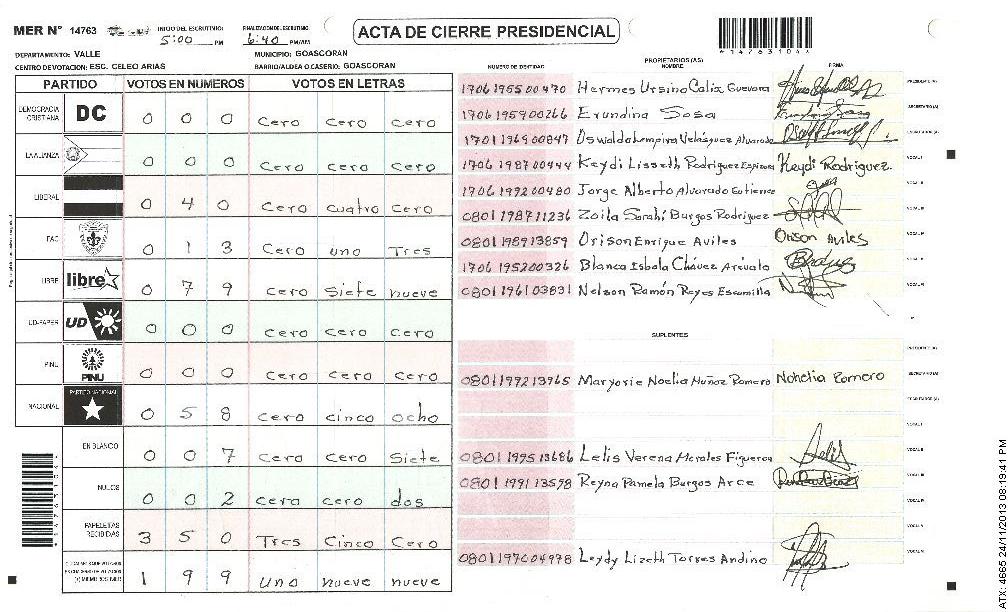 MER N° 14763 INICIO DEL ESCRUTINIO: 5:00 PM FINALIZACION DEL ESCRUTINIO: 6:40 PM/AM
ACTA DE CIERRE PRESIDENCIAL
DEPARTAMENTO: VALLE MUNICIPIO: GOASCORAN
CENTRO DE VOTACION: ESC. CELEO ARIAS BARRIO/ALDEA O CASERIO: GOASCORAN
PARTIDO VOTOS EN NUMEROS VOTOS EN LETRAS
DEMOCRACIA CRISTIANA DC 0 0 0 Cero Cero Cero
LA ALIANZA 0 0 0 Cero Cero Cero
LIBERAL 0 4 0 Cero cuatro Cero
PAC 0 1 3 Cero uno Tres
LIBRE libre 0 7 9 Cero Siete nueve
UD-FAPER UD 0 0 0 Cero Cero Cero
PINU PINU 0 0 0 Cero Cero Cero
NACIONAL PARTIDO NACIONAL 0 5 8 Cero cinco ocho
EN BLANCO 0 0 7 Cero Cero Siete
NULOS 0 0 2 Cero cero dos
PAPELETAS RECIBIDAS 3 5 0 Tres Cinco Cero
1 9 9 uno nueve nueve
PROPIETARIOS (AS)
NUMERO DE IDENTIDAD NOMBRE FIRMA
1706195500470 Hermes Ursino Calix Guevara PRESIDENTE (A)
1706195900266 Erundina Sosa SECRETARIO (A)
1701196900847 Oswaldo Lempira Velásquez Alvarado ESCRUTADOR (A)
1706198700444 Keydi Lisseth Rodriguez Espinoza Keydi Rodriguez. VOCAL I
1706199200480 Jorge Alberto Alvarado Gutierrez VOCAL II
0801198711236 Zoila Sarahí Burgos Rodriguez VOCAL III
0801198913859 Orison Enrique Aviles Orison Aviles VOCAL IV
1706195200326 Blanca Isbela Chávez Arévalo VOCAL V
0801196103831 Nelson Ramón Reyes Escamilla VOCAL VI
SUPLENTES
PRESIDENTE (A)
0801197213965 Maryorie Noelia Muñoz Romero Nohelia Romero SECRETARIO (A)
ESCRUTADOR (A)
VOCAL I
0801199513686 Lelis Verena Morales Figueroa VOCAL II
0801199113598 Reyna Pamela Burgos Arce VOCAL III
VOCAL IV
VOCAL V
0801197004978 Leydy Lizeth Torres Andino VOCAL VI
ATX: 4665 24/11/2013 08:19:41 PM